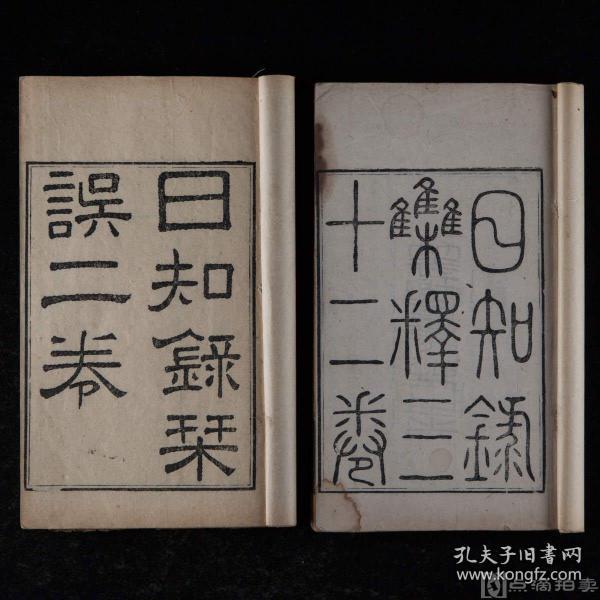 日知錄栞
誤二卷
日知錄
集釋三
十二卷
孔夫子旧书网
www.kongfz.com
点滴拍卖